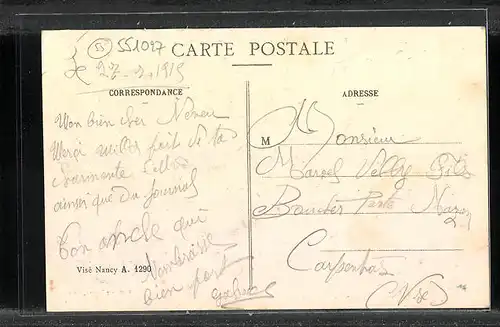 55 551027
CARTE POSTALE
Le 27-2-1915
CORRESPONDANCE
Mon bien cher Neveu
Merci mille fois de ta
charmante
ainsi que du journal
Ton oncle qui
t'embrasse
bien fort
Visé Nancy A. 1290
ADRESSE
M Monsieur
Marcel Velley Fils
Boucher Porte Mazan
Carpentras